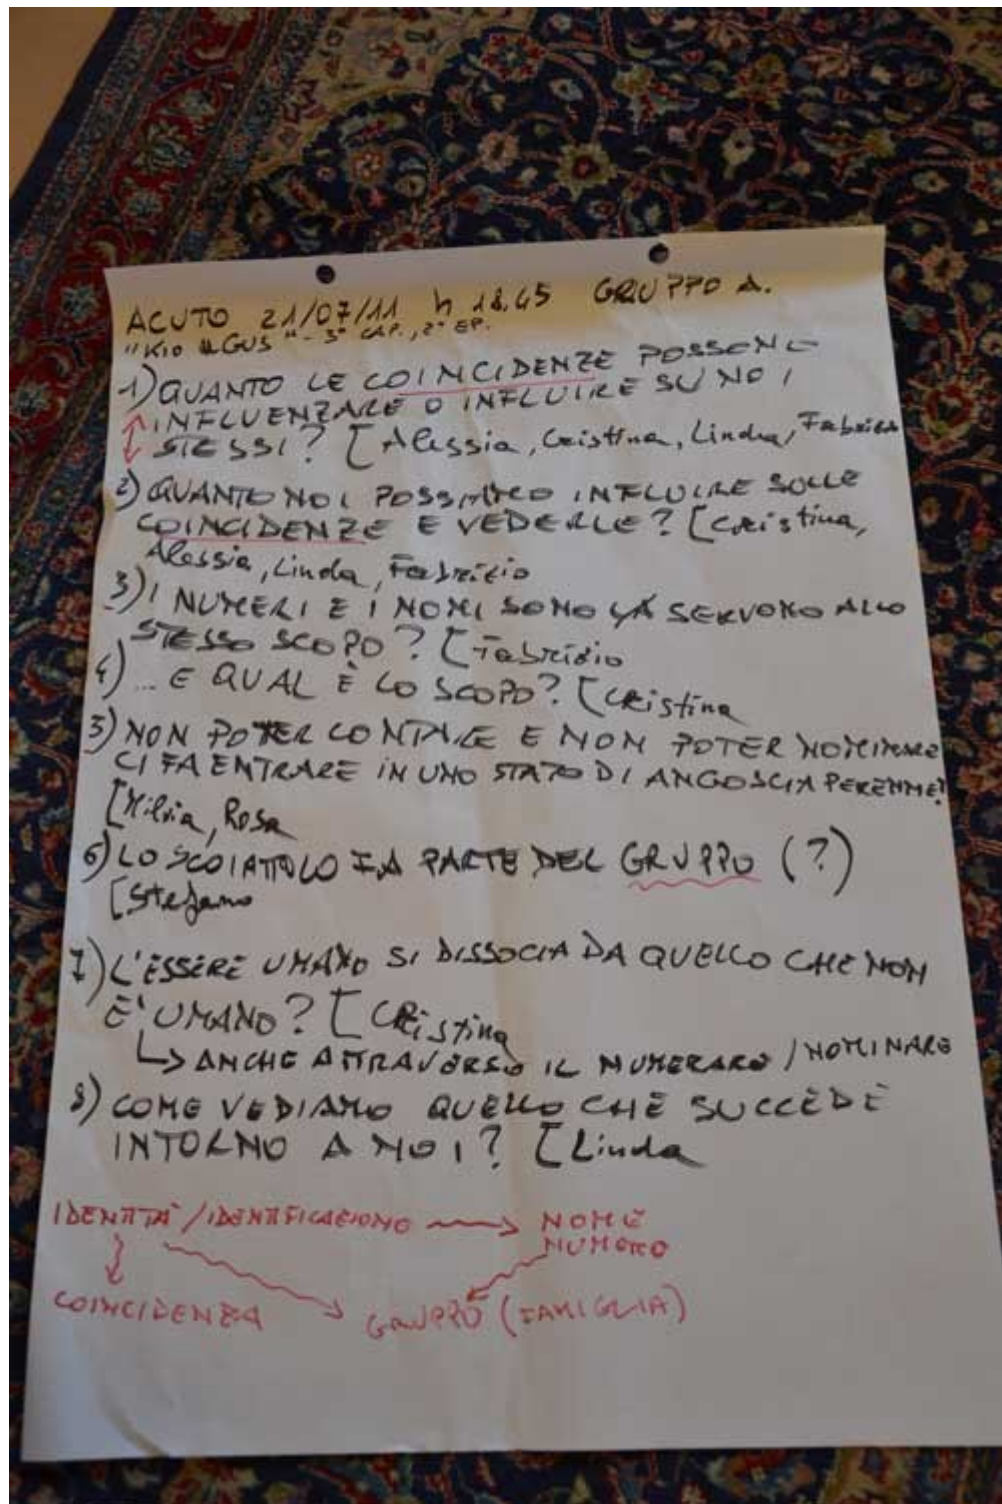 ACUTO 21/07/11 h 18.45 GRUPPO A.
"KIO & GUS" - 3° CAP., 2° EP.
1) QUANTO LE COINCIDENZE POSSONO
INFLUENZARE O INFLUIRE SU NOI
STESSI? [Alessia, Cristina, Linda, Fabrizio
2) QUANTO NOI POSSIAMO INFLUIRE SULLE
COINCIDENZE E VEDERLE? [Cristina,
Alessia, Linda, Fabrizio
3) I NUMERI E I NOMI SONO SERVONO ALLO
STESSO SCOPO? [Fabrizio
4) ... E QUAL È LO SCOPO? [Cristina
5) NON POTER CONTARE E NON POTER NOMINARE
CI FA ENTRARE IN UNO STATO DI ANGOSCIA PERENNE?
[Milvia, Rosa
6) LO SCOIATTOLO FA PARTE DEL GRUPPO (?)
[Stefano
7) L'ESSERE UMANO SI DISSOCIA DA QUELLO CHE NON
E' UMANO? [Cristina
↳ ANCHE ATTRAVERSO IL NUMERARE / NOMINARE
8) COME VEDIAMO QUELLO CHE SUCCEDE
INTORNO A NOI? [Linda
IDENTITÀ / IDENTIFICAZIONE → NOME
NUMERO
COINCIDENZA GRUPPO (FAMIGLIA)